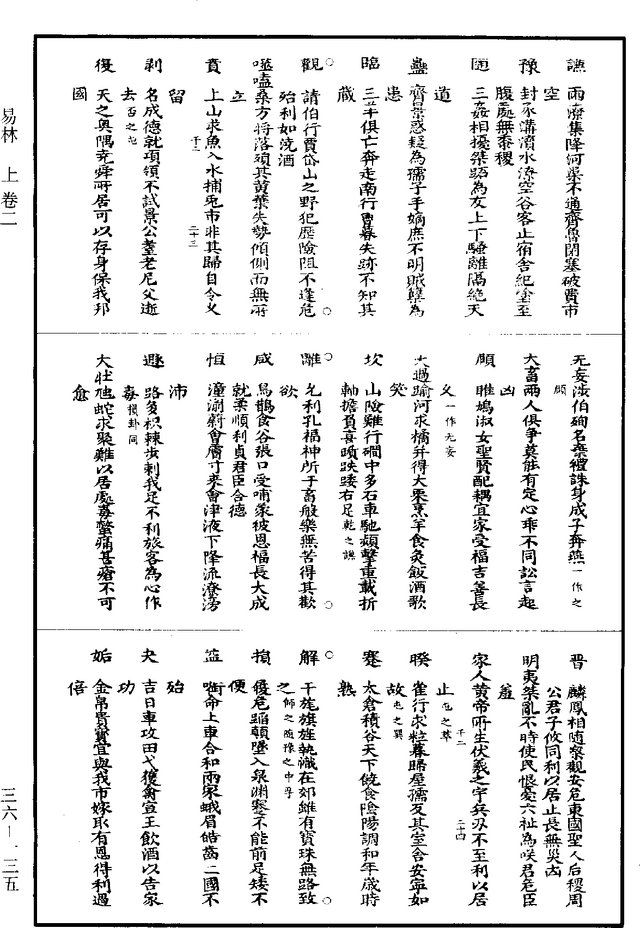 謙 雨潦集降河渠不通齊魯閉塞破費市
空
豫 封豕溝瀆水潦空谷客止宿舍紀室至
腹處無黍稷
隨 三姦相擾桀跖為友上下騷離隔絕天
道
蠱 齊景惑疑為孺子手嫡庶不明賊孽為
患
臨 三羊俱亡奔走南行會暮失跡不知其
藏
觀 請伯行賈岱山之野犯歷險阻不逢危
殆利如澆酒
噬嗑 桑方將落殞其黃葉失勢傾側而無所
立
賁 上山求魚入水捕兎市非其歸自令乆
留 千二 二十三
剥 名成德就項領不試景公耋老尼父逝
去 否之屯
復 天之奧隅堯舜所居可以存身保我邦
國
无妄 涉伯殉名棄禮誅身成子奔燕 一作之頤
大畜 兩人俱爭莫能有定心乖不同訟言起
凶
頤 雎鳩淑女聖賢配耦宜家受福吉善長
乆 一作无妄
大過 踰河求橘并得大栗烹羊食炙飲酒歌
笑
坎 山險難行磵中多石車馳轊擊重載折
軸擔負善躓跌踒右足 乾之謙
離 乞利孔福神所子畜般樂無苦得其歡
欲
咸 烏鵲食谷張口受哺蒙被恩福長大成
就柔順利貞君臣合德
恒 潼滃蔚會膚寸来會津液下降流潦滂
沛
遯 路多枳棘步刺我足不利旅客為心作
毒 損卦同
大壯 虺蛇求聚難以居處毒螫痛甚瘡不可
愈
晋 麟鳳相随察觀安危東國聖人后稷周
公君子攸同利以居止長無災凶
明夷 桀亂不時使民恨憂六祉為咲君危臣
羞
家人 黃帝所生伏羲之宇兵刃不至利以居
止 屯之萃 千二 二十四
睽 雀行求粒暮歸屋孺反其室舍安寧如
故 屯之巽
蹇 太倉積谷天下饒食陰陽調和年歲時
熟
解 干旄旗旌執幟在郊雖有寳珠無路致
之 師之隨豫之中孚
損 優危蹈顛墜入泉淵塞不能前足矮不
便
益 啣命上車合和兩家蛾眉皓齒二國不
殆
夬 吉日車攻田弋獲禽宣王飲酒以告家
功
姤 金帛貴寳宜與我市嫁取有恩得利過
倍
易林　上　卷二
三六—一三五